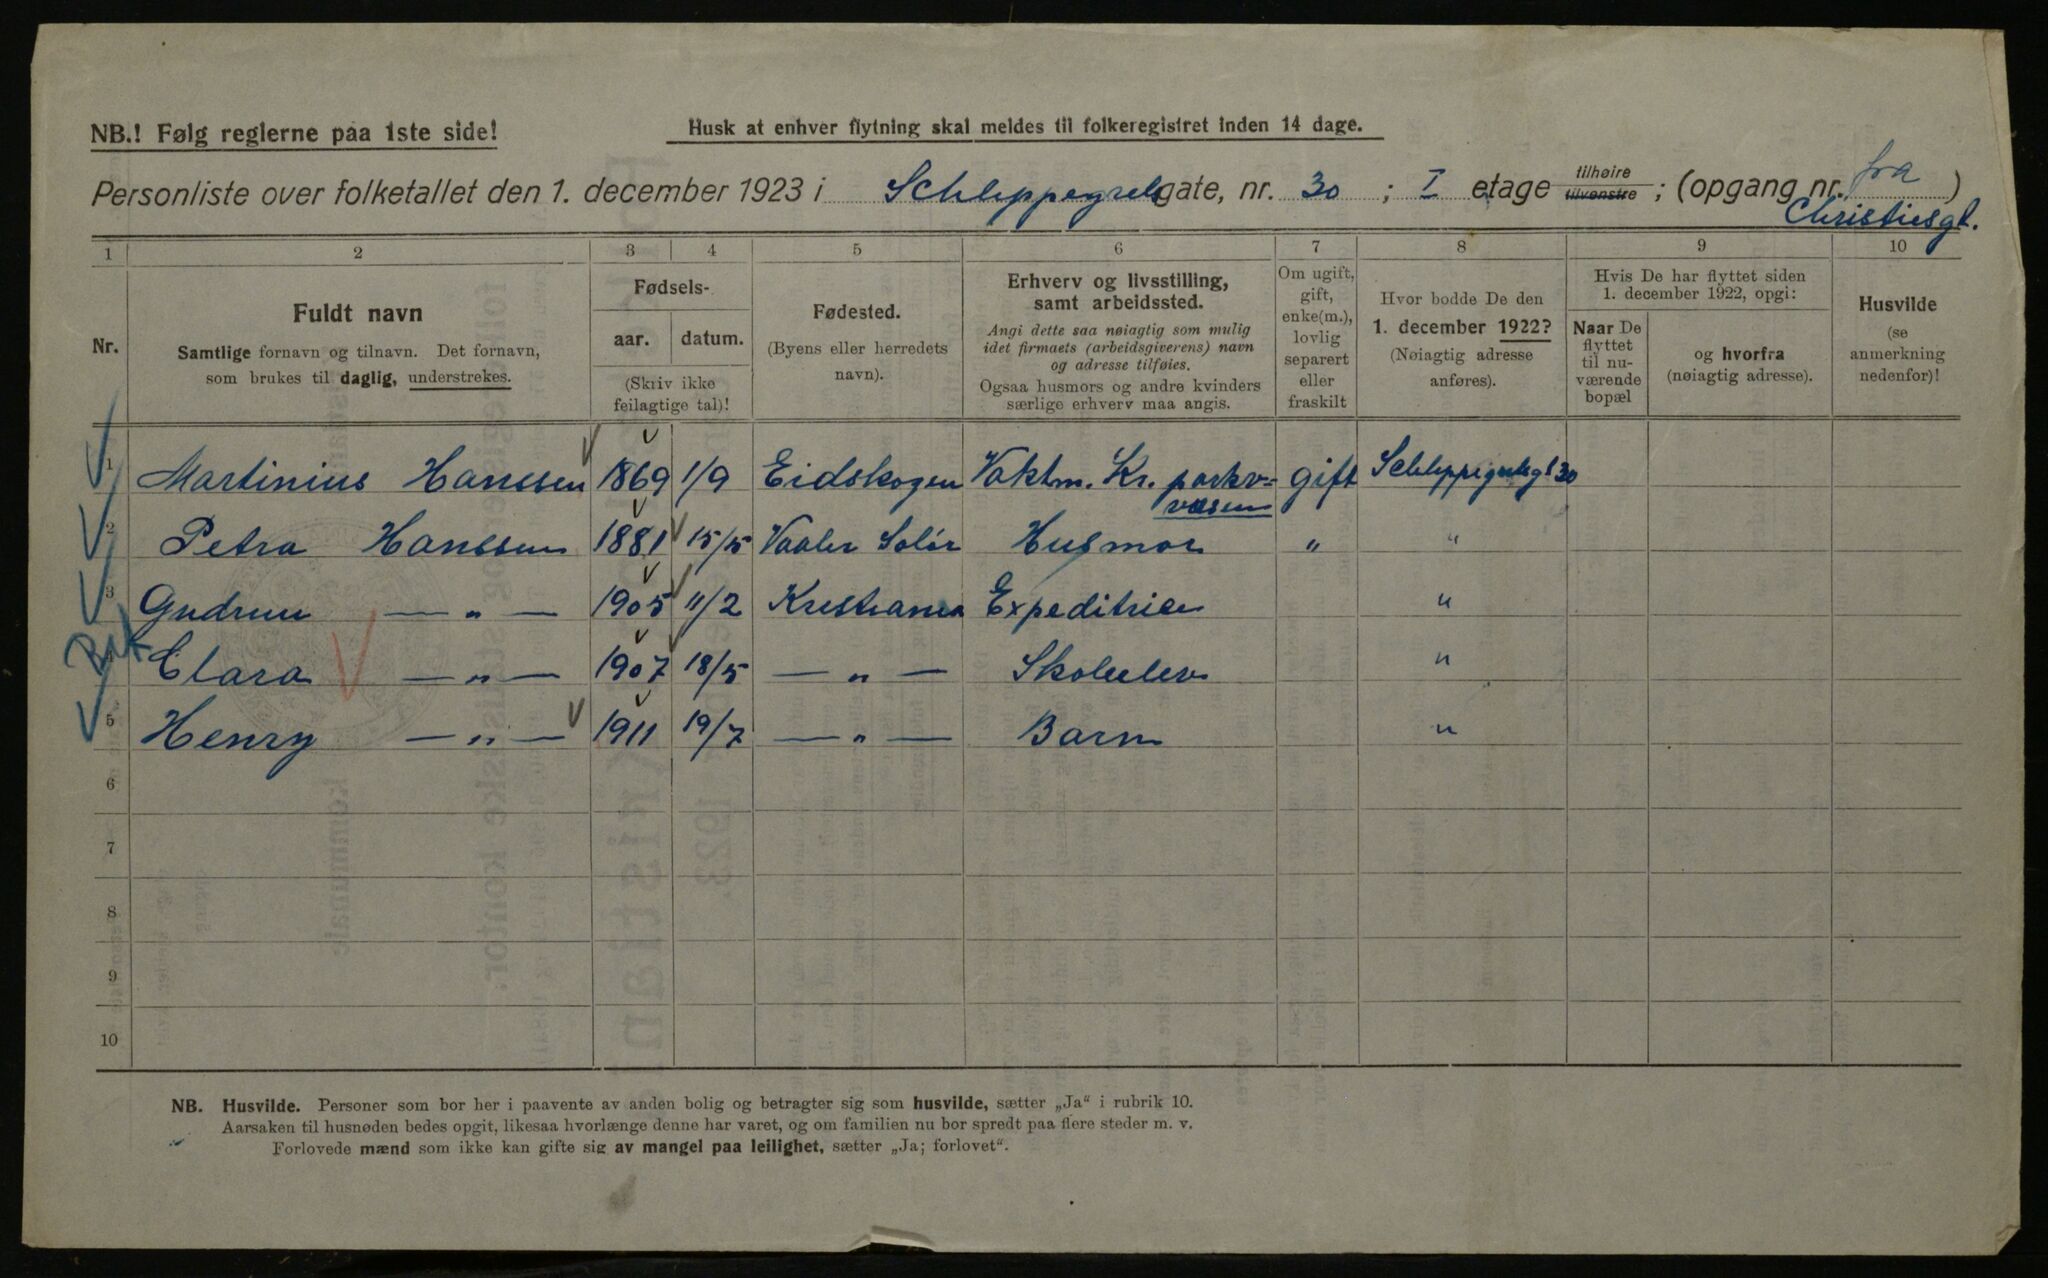 NB.! Følg reglerne paa 1ste side!
Husk at enhver flytning skal meldes til folkeregistret inden 14 dage.
Personliste over folketallet den 1. december 1923 i Schleppegrels gate, nr. 30 ; I etage tilhøire tilvenstre ; (opgang nr. fra )
Christiesgt.
1 2 3 4 5 6 7 8 9 10
Nr.
Fuldt navn
Samtlige fornavn og tilnavn. Det fornavn,
som brukes til daglig, understrekes.
Fødsels-
aar. datum.
(Skriv ikke
feilagtige tal)!
Fødested.
(Byens eller herredets
navn).
Erhverv og livsstilling,
samt arbeidssted.
Angi dette saa nøiagtig som mulig
idet firmaets (arbeidsgiverens) navn
og adresse tilføies.
Ogsaa husmors og andre kvinders
særlige erhverv maa angis.
Om ugift,
gift,
enke(m.),
lovlig
separert
eller
fraskilt
Hvor bodde De den
1. december 1922?
(Nøiagtig adresse
anføres).
Hvis De har flyttet siden
1. december 1922, opgi:
Naar De
flyttet
til nu-
værende
bopæl
og hvorfra
(nøiagtig adresse).
Husvilde
(se
anmerkning
nedenfor)!
1 Martinius Hanssen 1869 1/9 Eidskogen Vaktm. Kr. parkv- gift Schleppegrelsgt 30
væsen
2 Petra Hanssen 1881 15/5 Vaaler Solør Husmor " "
3 Gudrun — " — 1905 11/2 Kristiania Expeditrice "
4 Clara — " — 1907 18/5 — " — Skoleelev "
5 Henry — " — 1911 19/7 — " — Barn "
6
7
8
9
10
NB. Husvilde. Personer som bor her i paavente av anden bolig og betragter sig som husvilde, sætter „Ja“ i rubrik 10.
Aarsaken til husnøden bedes opgit, likesaa hvorlænge denne har varet, og om familien nu bor spredt paa flere steder m. v.
Forlovede mænd som ikke kan gifte sig av mangel paa leilighet, sætter „Ja; forlovet“.